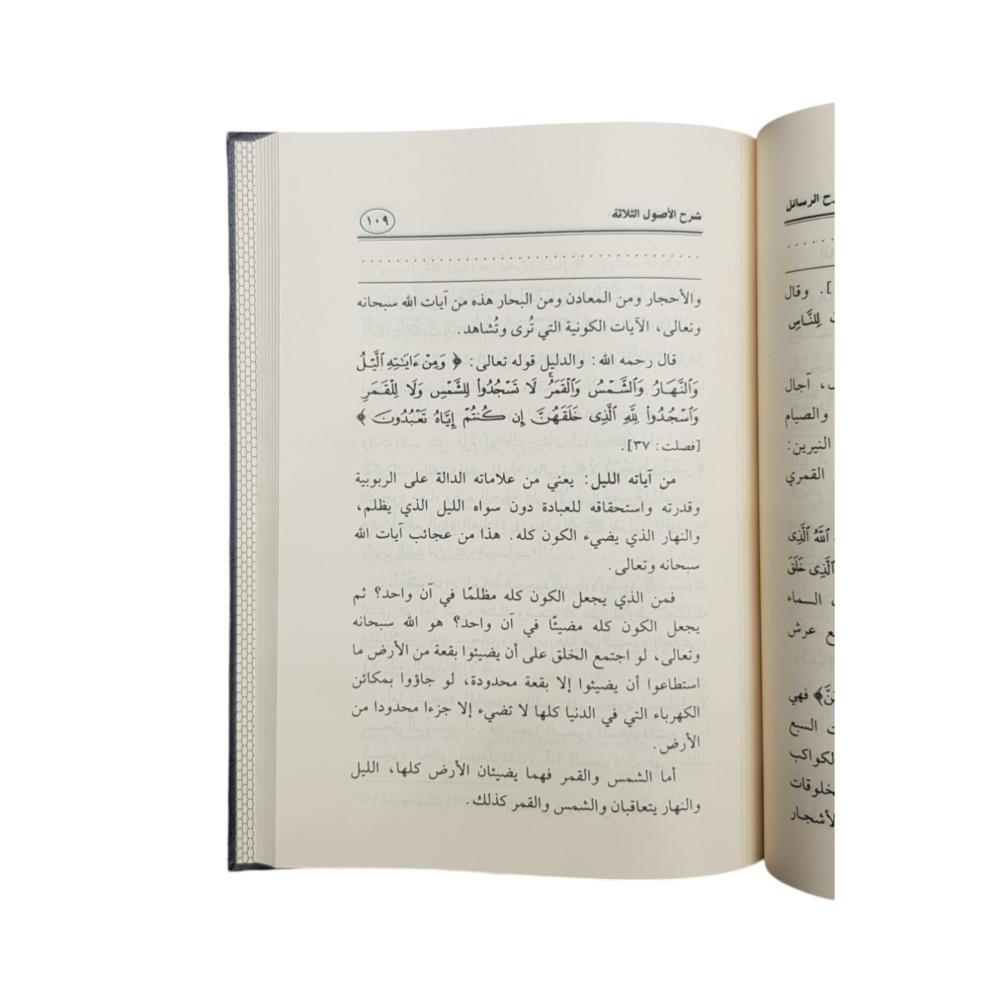 شرح الأصول الثلاثة
١٠٩
والأحجار ومن المعادن ومن البحار هذه من آيات الله سبحانه
وتعالى، الآيات الكونية التي تُرى وتُشاهد.
قال رحمه الله: والدليل قوله تعالى: ﴿ وَمِنْ ءَايَٰتِهِ ٱلَّيْلُ
وَٱلنَّهَارُ وَٱلشَّمْسُ وَٱلْقَمَرُ ۚ لَا تَسْجُدُوا۟ لِلشَّمْسِ وَلَا لِلْقَمَرِ
وَٱسْجُدُوا۟ لِلَّهِ ٱلَّذِى خَلَقَهُنَّ إِن كُنتُمْ إِيَّاهُ تَعْبُدُونَ ﴾
[فصلت: ٣٧].
من آياته الليل: يعني من علاماته الدالة على الربوبية
وقدرته واستحقاقه للعبادة دون سواه الليل الذي يظلم،
والنهار الذي يضيء الكون كله. هذا من عجائب آيات الله
سبحانه وتعالى.
فمن الذي يجعل الكون كله مظلمًا في آن واحد؟ ثم
يجعل الكون كله مضيئًا في آن واحد؟ هو الله سبحانه
وتعالى، لو اجتمع الخلق على أن يضيئوا بقعة من الأرض ما
استطاعوا أن يضيئوا إلا بقعة محدودة، لو جاؤوا بمكائن
الكهرباء التي في الدنيا كلها لا تضيء إلا جزءا محدودا من
الأرض.
أما الشمس والقمر فهما يضيئان الأرض كلها، الليل
والنهار يتعاقبان والشمس والقمر كذلك.
الرسائل
]. وقال
لِلنَّاسِ
، آجال
والصيام
النيرين:
القمري
ٱللَّهُ ٱلَّذِى
ٱلَّذِى خَلَقَ
السماء
عرش
﴾ فهي
السبع